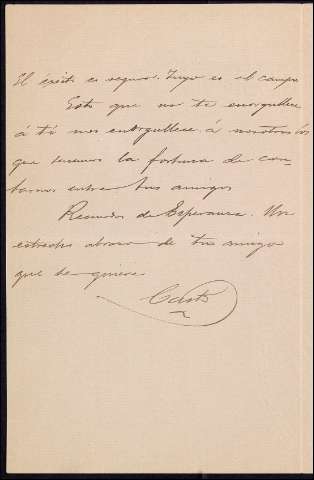 El éxito es seguro. Tuyo es el campo
Esto que no te enorgullece
á tí nos enorgullece á nosotros los
que tenemos la fortuna de con-
tarnos entre tus amigos
Recuerdos de Esperanza. Un
estrecho abrazo de tu amigo
que te quiere
Casto